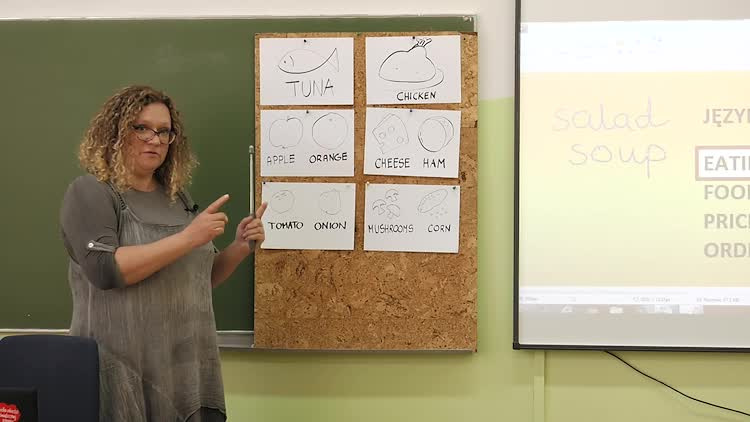 TUNA
CHICKEN
APPLE ORANGE
CHEESE HAM
TOMATO ONION
MUSHROOMS CORN
salad
soup
JĘZY
EATI
FOO
PRIC
ORD